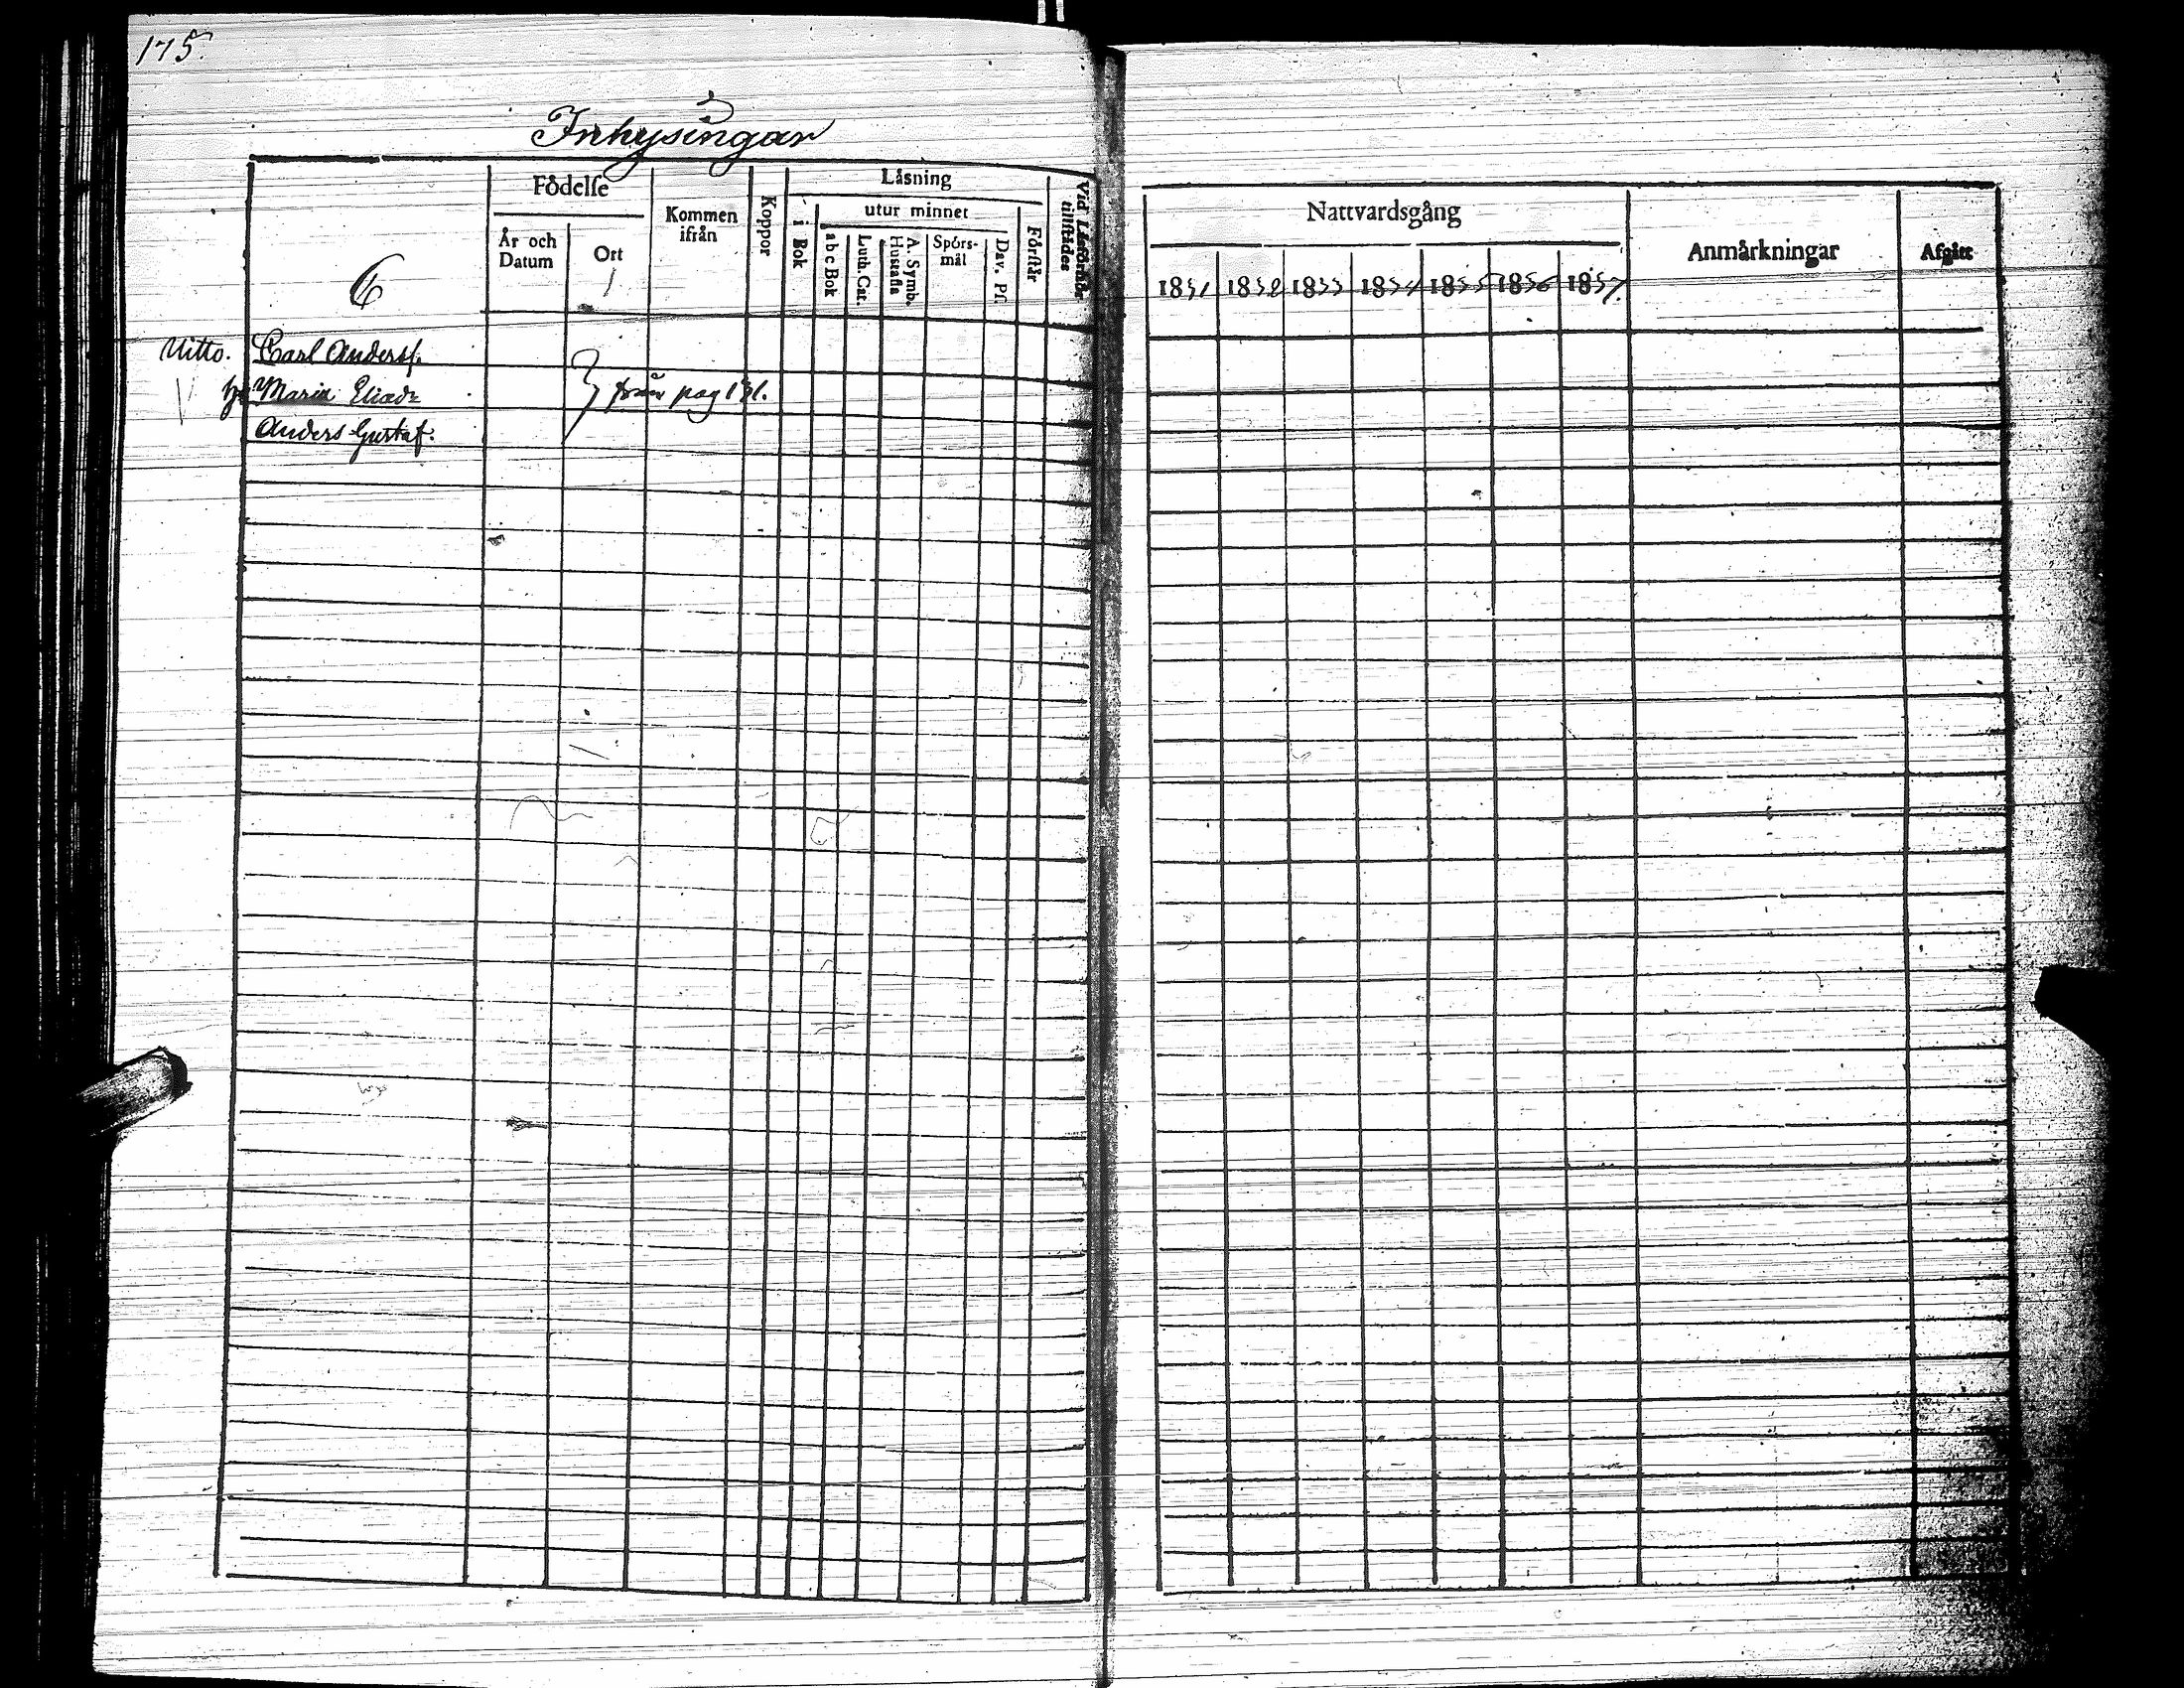 175.
Inhysingar
Födelse
År och Datum
Ort
Kommen ifrån
Koppor
Läsning
i Bok
utur minnet
abc Bok
Luth. Cat.
A. Symb. Hustafla
Spörs-mål
Dav. Ps.
Förstår
Vid Läsförhör tillstädes
Nattvardsgång
1851 1852 1853 1854 1855 1856 1857.
Anmärkningar
Afgått
Carl Anderss.
Maria
Anders Gustaf.
från pag 131.